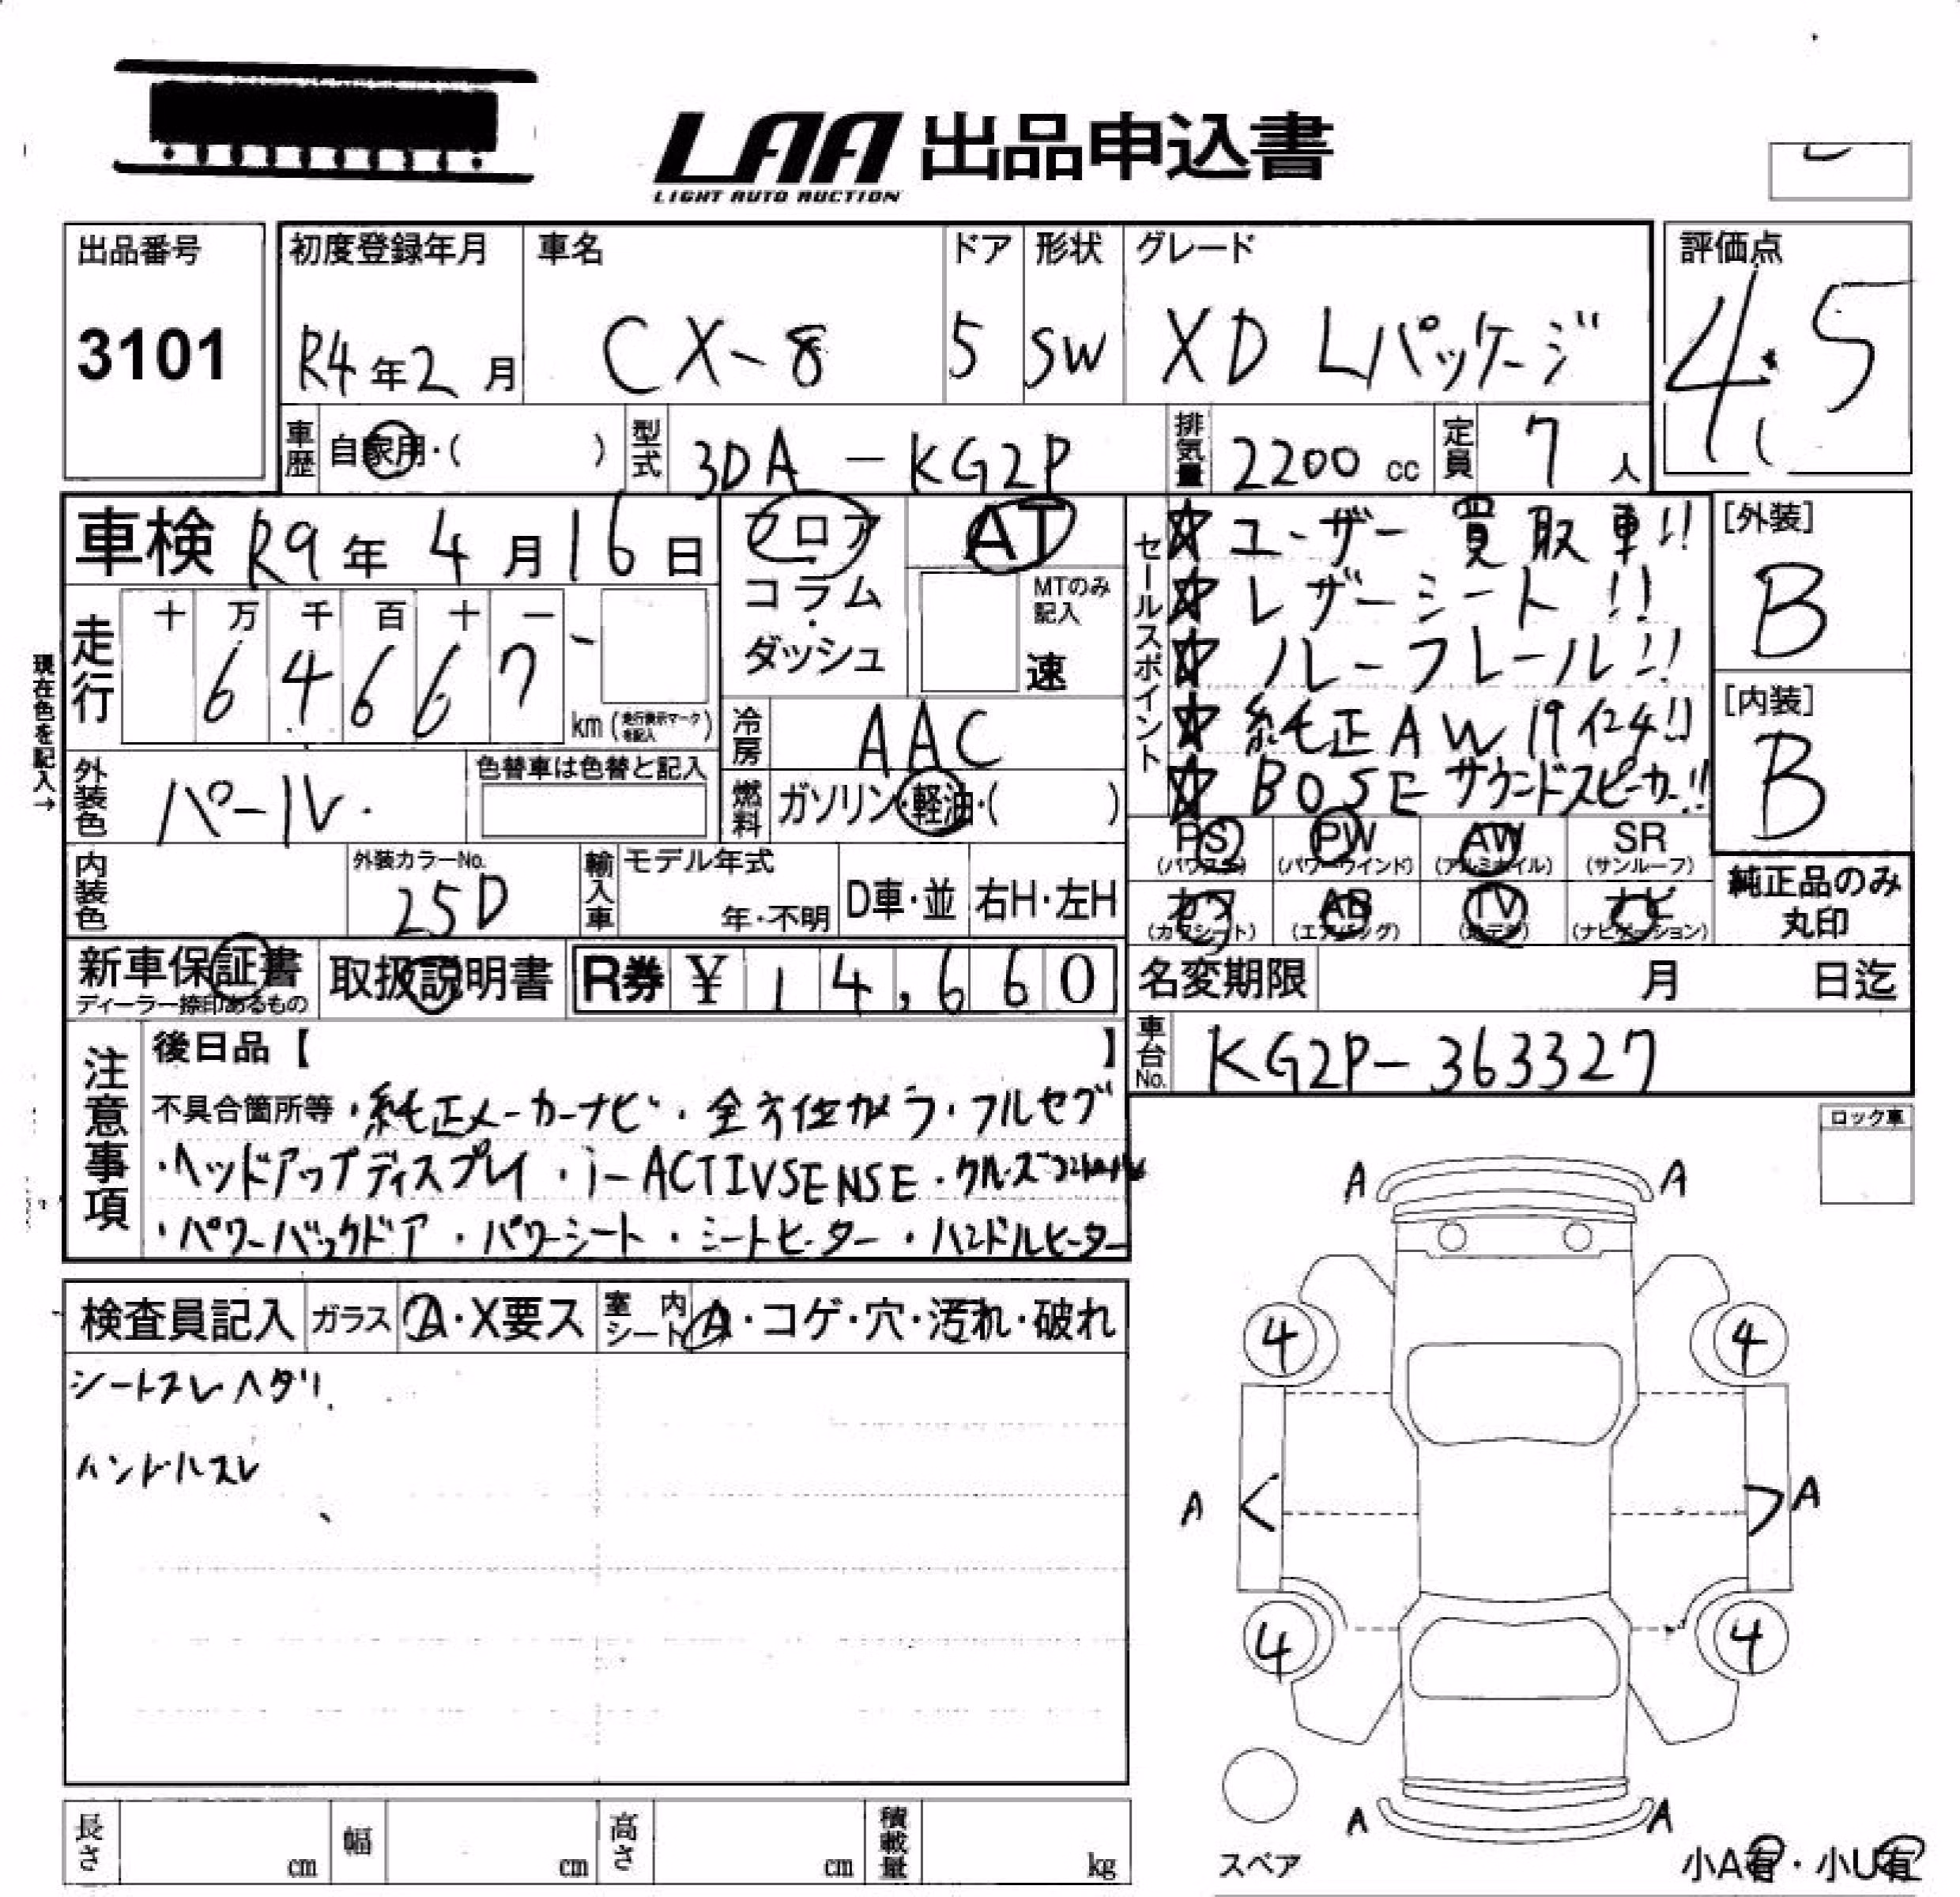 LAA 出品申込書
LIGHT AUTO AUCTION
出品番号 初度登録年月 車名 ドア 形状 グレード 評価点
3101 R4年2月 CX-8 5 SW XD Lパッケージ 4.5
車歴 自家用・( ) 型式 3DA-KG2P 排気量 2200 cc 定員 7人
車検 R9年4月16日
フロア AT
コラム
ダッシュ
MTのみ記入 速
セールスポイント
☆ユーザー買取車!!
☆レザーシート!!
☆ルーフレール!!
☆純正AW19インチ!!
☆BOSEサウンドスピーカー!!
[外装]
B
[内装]
B
現在色を記入→
走行 十 万 千 百 十 一
6 4 6 6 7
km (走行表示マークを記入)
冷房 AAC
外装色 パール 色替車は色替と記入
燃料 ガソリン・軽油・( )
PS (パワステ) PW (パワーウインド) AW (アルミホイル) SR (サンルーフ)
カワ (カワシート) AB (エアバッグ) TV (地デジ) ナビ (ナビゲーション)
純正品のみ
丸印
内装色 外装カラーNo. 25D 輸入車 モデル年式 年・不明 D車・並 右H・左H
新車保証書 取扱説明書 R券 ¥14,660 名変期限 月 日迄
ディーラー捺印あるもの
車台No. KG2P-363327
注意事項
後日品【 】
不具合箇所等・純正メーカーナビ・全方位カメラ・フルセグ
・ヘッドアップディスプレイ・i-ACTIVSENSE・クルーズコントロール
・パワーバックドア・パワーシート・シートヒーター・ハンドルヒーター
ロック車
検査員記入 ガラス A・X要ス 室内シート A・コゲ・穴・汚れ・破れ
シートスレヘタリ
ハンドルスレ
A A
4 4
A A
4 4
A A
スペア
小A有・小U有
長さ cm 幅 cm 高さ cm 積載量 kg